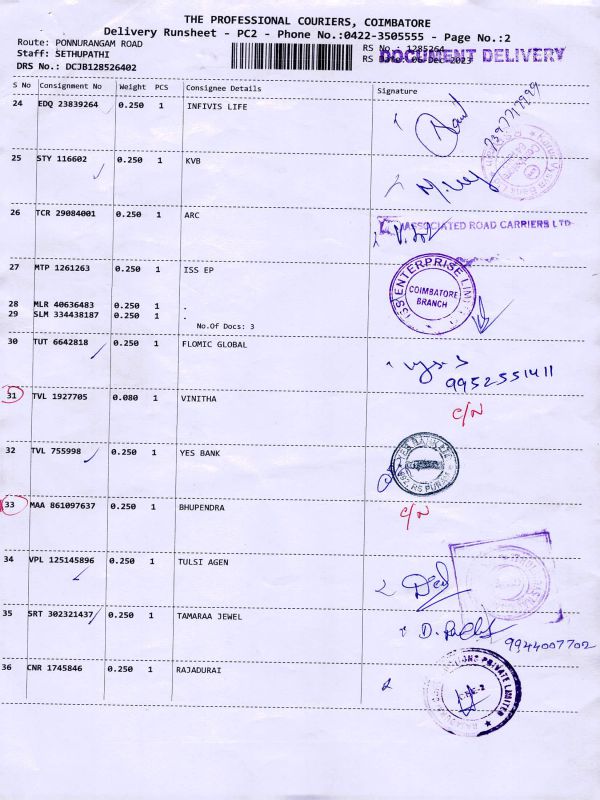 THE PROFESSIONAL COURIERS, COIMBATORE
Delivery Runsheet - PC2 - Phone No.:0422-3505555 - Page No.:2
Route: PONNURANGAM ROAD
RS No.: 1285264
Staff: SETHUPATHI
DOCUMENT DELIVERY
RS Date:06-Dec-2023
DRS No.: DCJB128526402
S No Consignment No Weight PCS Consignee Details Signature
24 EDQ 23839264 0.250 1 INFIVIS LIFE
25 STY 116602 0.250 1 KVB
26 TCR 29084001 0.250 1 ARC
ASSOCIATED ROAD CARRIERS LTD
27 MTP 1261263 0.250 1 ISS EP
ISS ENTERPRISE LIMITED
COIMBATORE
BRANCH
28 MLR 40636483 0.250 1 .
29 SLM 334438187 0.250 1 .
No.Of Docs: 3
30 TUT 6642818 0.250 1 FLOMIC GLOBAL
9952551411
31 TVL 1927705 0.080 1 VINITHA
C/N
32 TVL 755998 0.250 1 YES BANK
33 MAA 861097637 0.250 1 BHUPENDRA
C/N
34 VPL 125145896 0.250 1 TULSI AGEN
35 SRT 302321437 0.250 1 TAMARAA JEWEL
9944007702
36 CNR 1745846 0.250 1 RAJADURAI
PRIVATE LIMITED